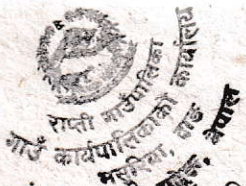 राप्ती गाउँपालिका
गाउँ कार्यपालिकाको कार्यालय
मसुरिया, दाङ
नेपाल